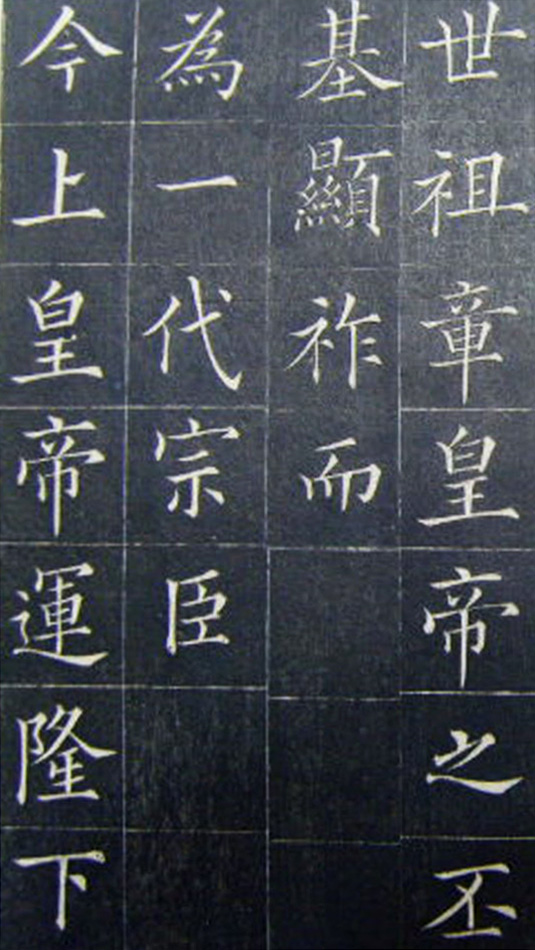 世祖章皇帝之丕
基顯祚而
為一代宗臣
今上皇帝運隆下